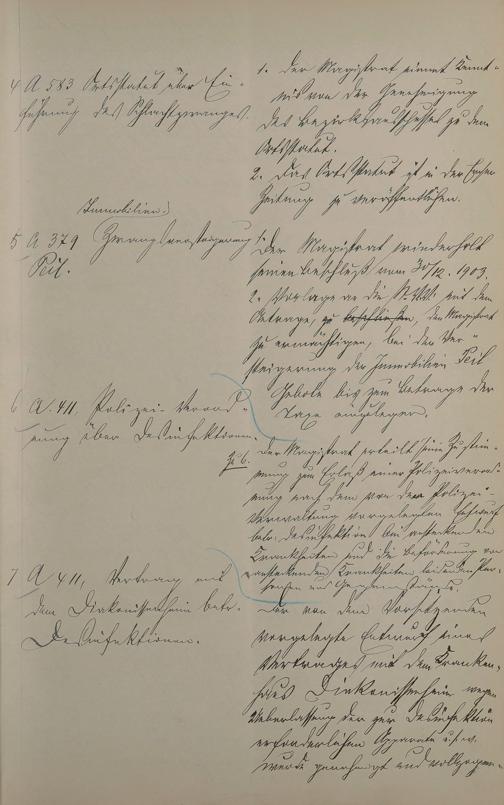 4 A 583 Ortsstatut über Ein-
führung des Schlachtzwanges.
1. Der Magistrat nimmt Kennt-
nis von der Genehmigung
des Bezirksausschusses zu dem
Ortsstatut.
2. Das Ortsstatut ist in der
Zeitung zu veröffentlichen.
Immobilien
5 A 379 Zwangsversteigerung
Peil.
1. Der Magistrat wiederholt
seinen Beschluß vom 30/12. 1903.
2. Vorlage an die St.V.V. mit dem
Antrage, zu beschließen, den Magistrat
zu ermächtigen, bei der Ver-
steigerung der Immobilien Peil
Gebote bis zum Betrage der
Taxe einzulegen.
6 A. 411, Polizei-Verord-
nung über Desinfektionen.
Zu 6. Der Magistrat erteilt seine Zustim-
mung zum Erlaß einer Polizeiverord-
nung nach dem von der Polizei-
Verwaltung vorgelegten Entwurf
betr. Desinfektion bei ansteckenden
Krankheiten und die Beförderung von
ansteckenden Krankheiten leidenden Per-
sonen
7 A 411, Vertrag mit
dem Diakonissenheim betr.
Desinfektionen.
Der von dem Vorsitzenden
vorgelegte Entwurf eines
Vertrages mit dem Kranken-
haus Diakonissenheim wegen
Ueberlassung der zur Desinfektion
erforderlichen Apparate u.s.w.
wurde genehmigt und vollzogen.